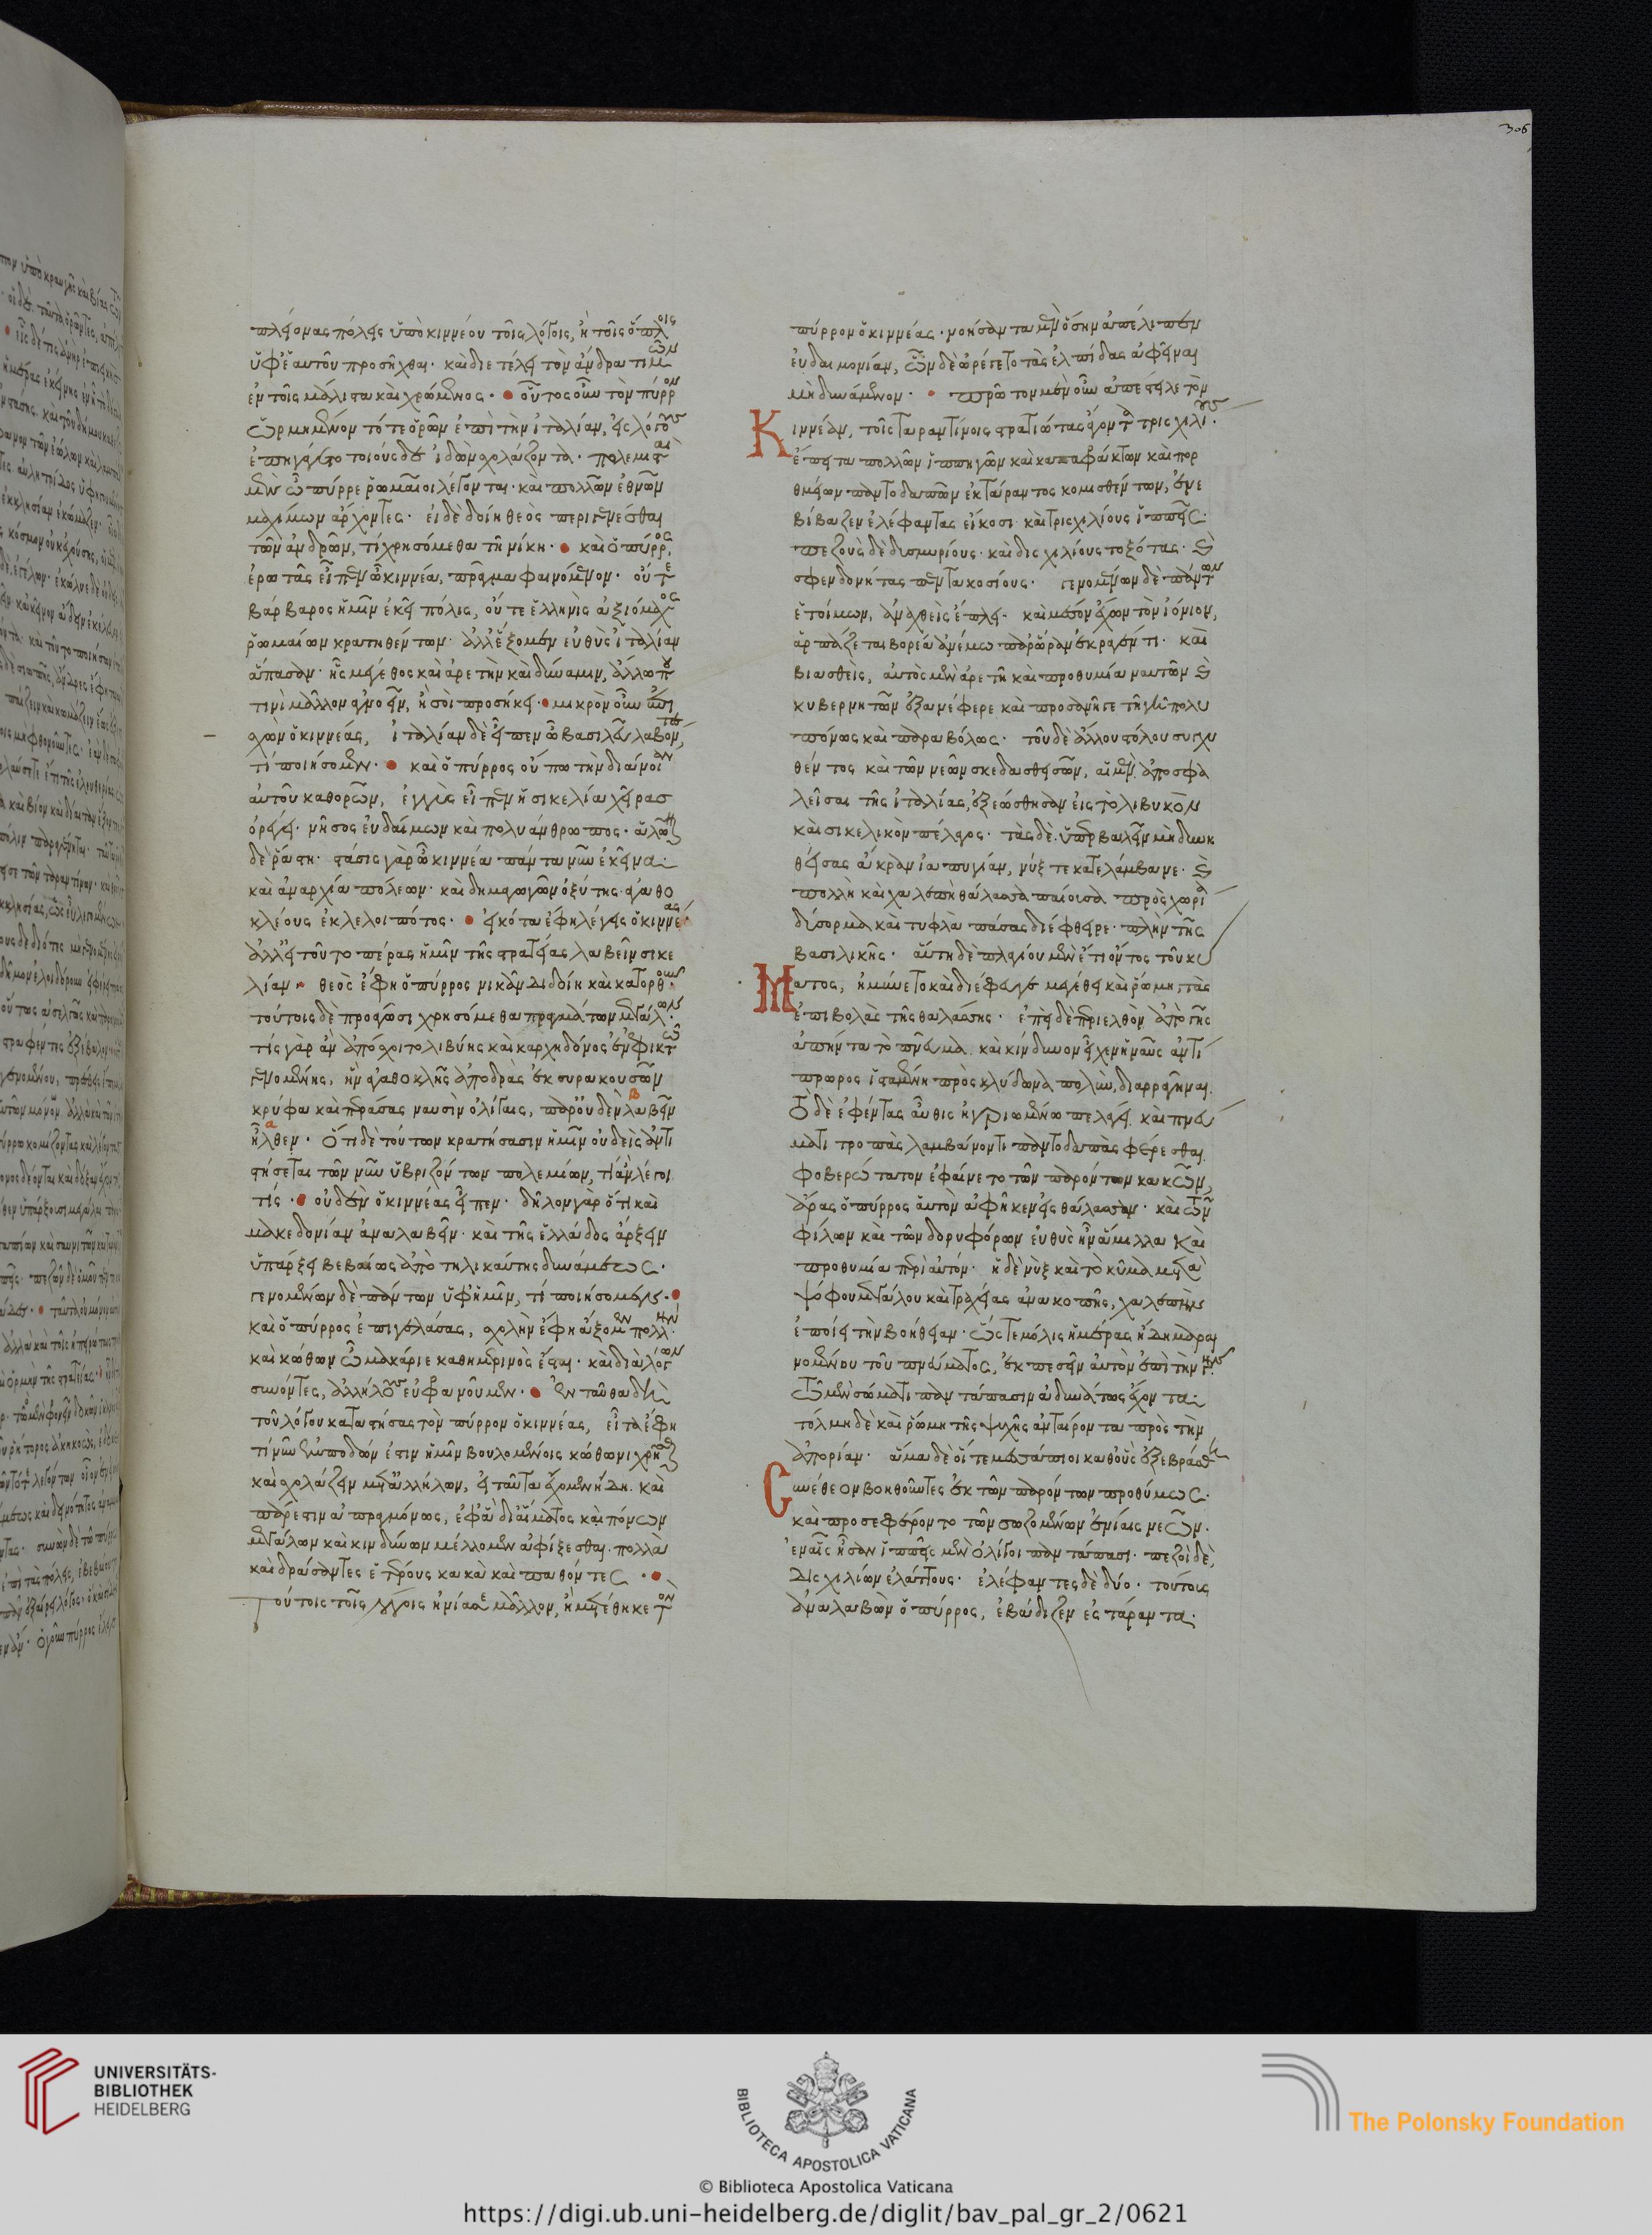 πλείονας πόλεις ὑπὸ κιννέου τοῖς λόγοις, ἢ τοῖς ὅπλοις
ὑφ' ἑαυτοῦ προσῆχθαι· καὶ διετέλει τὸν ἄνδρα τιμῶν
ἐν τοῖς μάλιστα καὶ χρώμενος· οὗτος οὖν τὸν πύρρον
ὡρμημένον τότε ὁρῶν ἐπὶ τὴν ἰταλίαν, εἰς λόγους
ἐπηγάγετο τοιούσδε ἰδὼν σχολάζοντα· πολεμισταὶ
μὲν ὦ πύρρε ῥωμαῖοι λέγονται· καὶ πολλῶν ἐθνῶν
μαχίμων ἄρχοντες· εἰ δὲ δοίη θεὸς περιγενέσθαι
τῶν ἀνδρῶν, τί χρησόμεθα τῇ νίκῃ· καὶ ὁ πύρρος,
ἐρωτᾶς εἶπεν ὦ κιννέα, πρᾶγμα φαινόμενον· οὔτε
βάρβαρος ἡμῖν ἐκεῖ πόλις, οὔτε ἑλληνὶς ἀξιόμαχος
ῥωμαίων κρατηθέντων· ἀλλ' ἕξομεν εὐθὺς ἰταλίαν
ἅπασαν· ἧς μέγεθος καὶ ἀρετὴν καὶ δύναμιν, ἄλλῳ που
τινὶ μᾶλλον ἀγνοεῖν, ἢ σοὶ προσήκει· μικρὸν οὖν ἐπι
σχὼν ὁ κιννέας, ἰταλίαν δὲ εἶπεν ὦ βασιλεῦ λαβόντες,
τί ποιήσομεν· καὶ ὁ πύρρος οὔπω τὴν διάνοιαν
αὐτοῦ καθορῶν, ἐγγὺς εἶπεν ἡ σικελία χεῖρας
ὀρέγει· νῆσος εὐδαίμων καὶ πολυάνθρωπος· ἁλῶναι
δὲ ῥάστη· στάσις γὰρ ὦ κιννέα πάντα νῦν ἐκεῖνα·
καὶ ἀναρχία πόλεων· καὶ δημαγωγῶν ὀξύτης ἀγαθο
κλέους ἐκλελοιπότος· εἰκότα ἔφη λέγεις ὁ κιννέας·
ἀλλ' εἰ τοῦτο πέρας ἡμῖν τῆς στρατείας λαβεῖν σικε
λίαν· θεὸς ἔφη ὁ πύρρος νικᾶν διδοίη καὶ κατορθοῦν·
τούτοις δὲ προαγῶσι χρησόμεθα πραγμάτων μεγάλων·
τίς γὰρ ἂν ἀπόσχοιτο λιβύης καὶ καρχηδόνος ἐν ἐφικτῷ
γενομένης, ἣν ἀγαθοκλῆς ἀποδρὰς ἐκ συρακουσῶν
κρύφα καὶ περάσας ναυσὶν ὀλίγαις, παρ' οὐδὲν λαβεῖν
ἦλθεν· ὅτι δὲ τούτων κρατήσασιν ἡμῖν οὐδεὶς ἀντι
στήσεται τῶν νῦν ὑβριζόντων πολεμίων, τί ἂν λέγοι
τίς· οὐδὲν ὁ κιννέας εἶπεν· δῆλον γὰρ ὅτι καὶ
μακεδονίαν ἀναλαβεῖν· καὶ τῆς ἑλλάδος ἄρξειν
ὑπάρξει βεβαίως ἀπὸ τηλικαύτης δυνάμεως·
γενομένων δὲ πάντων ὑφ' ἡμῖν, τί ποιήσομεν·
καὶ ὁ πύρρος ἐπιγελάσας, σχολὴν ἔφη ἄξομεν πολλήν·
καὶ κώθων ὦ μακάριε καθημερινὸς ἔσται· καὶ διὰ λόγων
συνόντες, ἀλλήλους εὐφρανοῦμεν· ἐνταῦθα δὴ
τοῦ λόγου καταστήσας τὸν πύρρον ὁ κιννέας, εἶτα ἔφη
τί νῦν ἐμποδών ἐστιν ἡμῖν βουλομένοις κώθωνι χρῆσθαι
καὶ σχολάζειν μετ' ἀλλήλων, εἰ ταῦτα ἔχομεν ἤδη· καὶ
πάρεστιν ἀπραγμόνως, ἐφ' ἃ δι' αἵματος καὶ πόνων
μεγάλων καὶ κινδύνων μέλλομεν ἀφίξεσθαι· πολλὰ
καὶ δράσαντες ἑτέρους κακὰ καὶ παθόντες·
Τούτοις τοῖς λόγοις ἠνίασε μᾶλλον, ἢ μετέθηκε τὸν
πύρρον ὁ κιννέας· νοήσαντα μὲν ὅσην ἀπέλιπεν
εὐδαιμονίαν, ὧν δὲ ὠρέγετο τὰς ἐλπίδας ἀφεῖναι
μὴ δυνάμενον· πρῶτον μὲν οὖν ἀπέστειλε τὸν
Κιννέαν, τοῖς ταραντίνοις στρατιώτας ἄγοντα τρισχιλίους·
ἔπειτα πολλῶν ἱππηγῶν καὶ καταφράκτων καὶ πορ
θμείων παντοδαπῶν ἐκ τάραντος κομισθέντων, ἐνε
βίβαζεν ἐλέφαντας εἴκοσι· καὶ τρισχιλίους ἱππεῖς·
πεζοὺς δὲ δισμυρίους· καὶ δισχιλίους τοξότας· καὶ
σφενδονήτας πεντακοσίους· γενομένων δὲ πάντων
ἑτοίμων, ἀναχθεὶς ἔπλει· καὶ μέσον ἔχων τὸν ἰόνιον,
ἁρπάζεται βορέᾳ ἀνέμῳ παρ' ὥραν ἐκραγέντι· καὶ
βιασθεὶς, αὐτὸς μὲν ἀρετῇ καὶ προθυμίᾳ ναυτῶν καὶ
κυβερνητῶν ἐξανέφερε καὶ προσανῆγε τῇ γῇ πολυ
πόνως καὶ παραβόλως· τοῦ δὲ ἄλλου στόλου συγχυ
θέντος καὶ τῶν νεῶν σκεδασθεισῶν, αἱ μὲν ἀποσφα
λεῖσαι τῆς ἰταλίας, ἐξεώσθησαν εἰς τὸ λιβυκὸν
καὶ σικελικὸν πέλαγος· τὰς δὲ ὑπερβαλεῖν μὴ δυνη
θείσας ἄκραν ἰαπυγίαν, νύξ τε κατελάμβανε· καὶ
πολλὴ καὶ χαλεπὴ θάλασσα παίουσα πρὸς χωρία
δύσορμα καὶ τυφλὰ πάσας διέφθειρε· πλὴν τῆς
βασιλικῆς· αὕτη δὲ πλαγίου μὲν ἔτι ὄντος τοῦ κύ
Ματος, ἠμύνετο καὶ διέφυγε μεγέθει καὶ ῥώμῃ τὰς
ἐπιβολὰς τῆς θαλάσσης· ἐπεὶ δὲ περιελθὸν ἀπὸ γῆς
ἀπήντα τὸ πνεῦμα· καὶ κίνδυνον εἶχεν ἡ ναῦς ἀντί
πρωρος ἱσταμένη πρὸς κλύδωνα πολὺν, διαρραγῆναι·
Τὸ δὲ ἐφέντας αὖθις ἠγριωμένῳ πελάγει καὶ πνεύ
ματι τροπὰς λαμβάνοντι παντοδαπὰς φέρεσθαι
φοβερώτατον ἐφαίνετο τῶν παρόντων κακῶν,
ἄρας ὁ πύρρος αὑτὸν ἀφῆκεν εἰς θάλασσαν· καὶ τῶν
φίλων καὶ τῶν δορυφόρων εὐθὺς ἦν ἅμιλλα καὶ
προθυμία περὶ αὐτόν· ἡ δὲ νὺξ καὶ τὸ κῦμα μετὰ
ψόφου μεγάλου καὶ τραχείας ἀνακοπῆς, χαλεπὴν
ἐποίει τὴν βοήθειαν· ὥστε μόλις ἡμέρας ἤδη μαραι
νομένου τοῦ πνεύματος, ἐκπεσεῖν αὐτὸν ἐπὶ τὴν γῆν·
Τῷ μὲν σώματι παντάπασιν ἀδυνάτως ἔχοντα·
τόλμῃ δὲ καὶ ῥώμῃ τῆς ψυχῆς ἀνταίροντα πρὸς τὴν
ἀπορίαν· ἅμα δὲ οἵ τε μεσσάπιοι καθ' οὓς ἐξεβράσθη
Συνέθεον βοηθοῦντες ἐκ τῶν παρόντων προθύμως·
καὶ προσεφέροντο τῶν σῳζομένων ἔνιαις νεῶν·
ἐν αἷς ἦσαν ἱππεῖς μὲν ὀλίγοι παντάπασι· πεζοὶ δὲ,
δισχιλίων ἐλάττους· ἐλέφαντες δὲ δύο· τούτους
ἀναλαβὼν ὁ πύρρος, ἐβάδιζεν εἰς τάραντα·
306
UNIVERSITÄTS-
BIBLIOTHEK
HEIDELBERG
BIBLIOTECA APOSTOLICA VATICANA
The Polonsky Foundation
© Biblioteca Apostolica Vaticana
https://digi.ub.uni-heidelberg.de/diglit/bav_pal_gr_2/0621